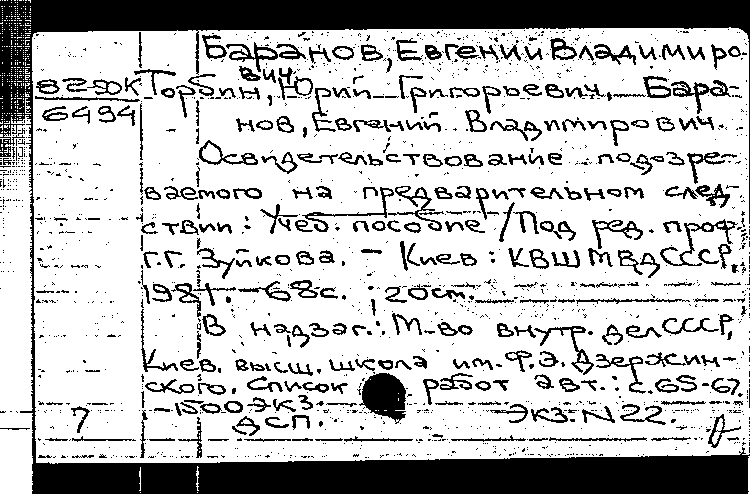 Баранов, Евгений Владимиро-
вич.
82-ЭЖ Торбин, Юрий Григорьевич, Бара-
6494 нов, Евгений Владимирович.
Освидетельствование подозре-
ваемого на предварительном след-
ствии: Учеб. пособие / Под ред. проф.
Г.Г. Зуйкова. – Киев: КВШ МВД СССР,
1981. – 68с.; 20см.
В надзаг.: М-во внутр. дел СССР,
Киев. высш. школа им. Ф.Э. Дзержин-
ского. Список работ авт.: с.65-67.
-1500 экз.
7 ДСП. Экз. N 22.